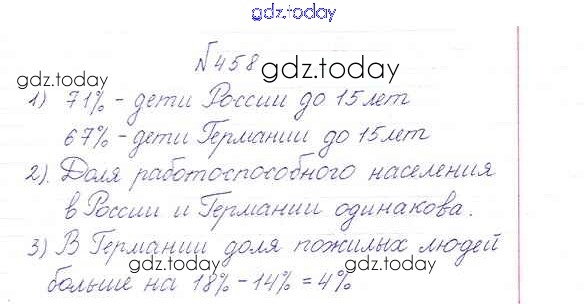 gdz.today
№458
gdz.today gdz.today
1) 71% - дети России до 15 лет
67% - дети Германии до 15 лет
2). Доля работоспособного населения
в России и Германии одинакова.
3) В Германии доля пожилых людей
gdz.today gdz.today
больше на 18% - 14% = 4%